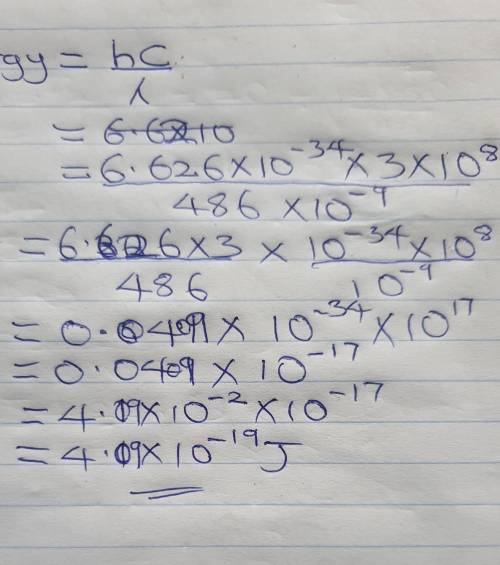 gy = hC / λ
= 6.62×10
= 6.626×10⁻³⁴×3×10⁸ / 486 ×10⁻⁹
= 6.626×3 / 486 × 10⁻³⁴×10⁸ / 10⁻⁹
= 0.0409× 10⁻³⁴×10¹⁷
= 0.0409 × 10⁻¹⁷
= 4.09×10⁻²×10⁻¹⁷
= 4.09×10⁻¹⁹J